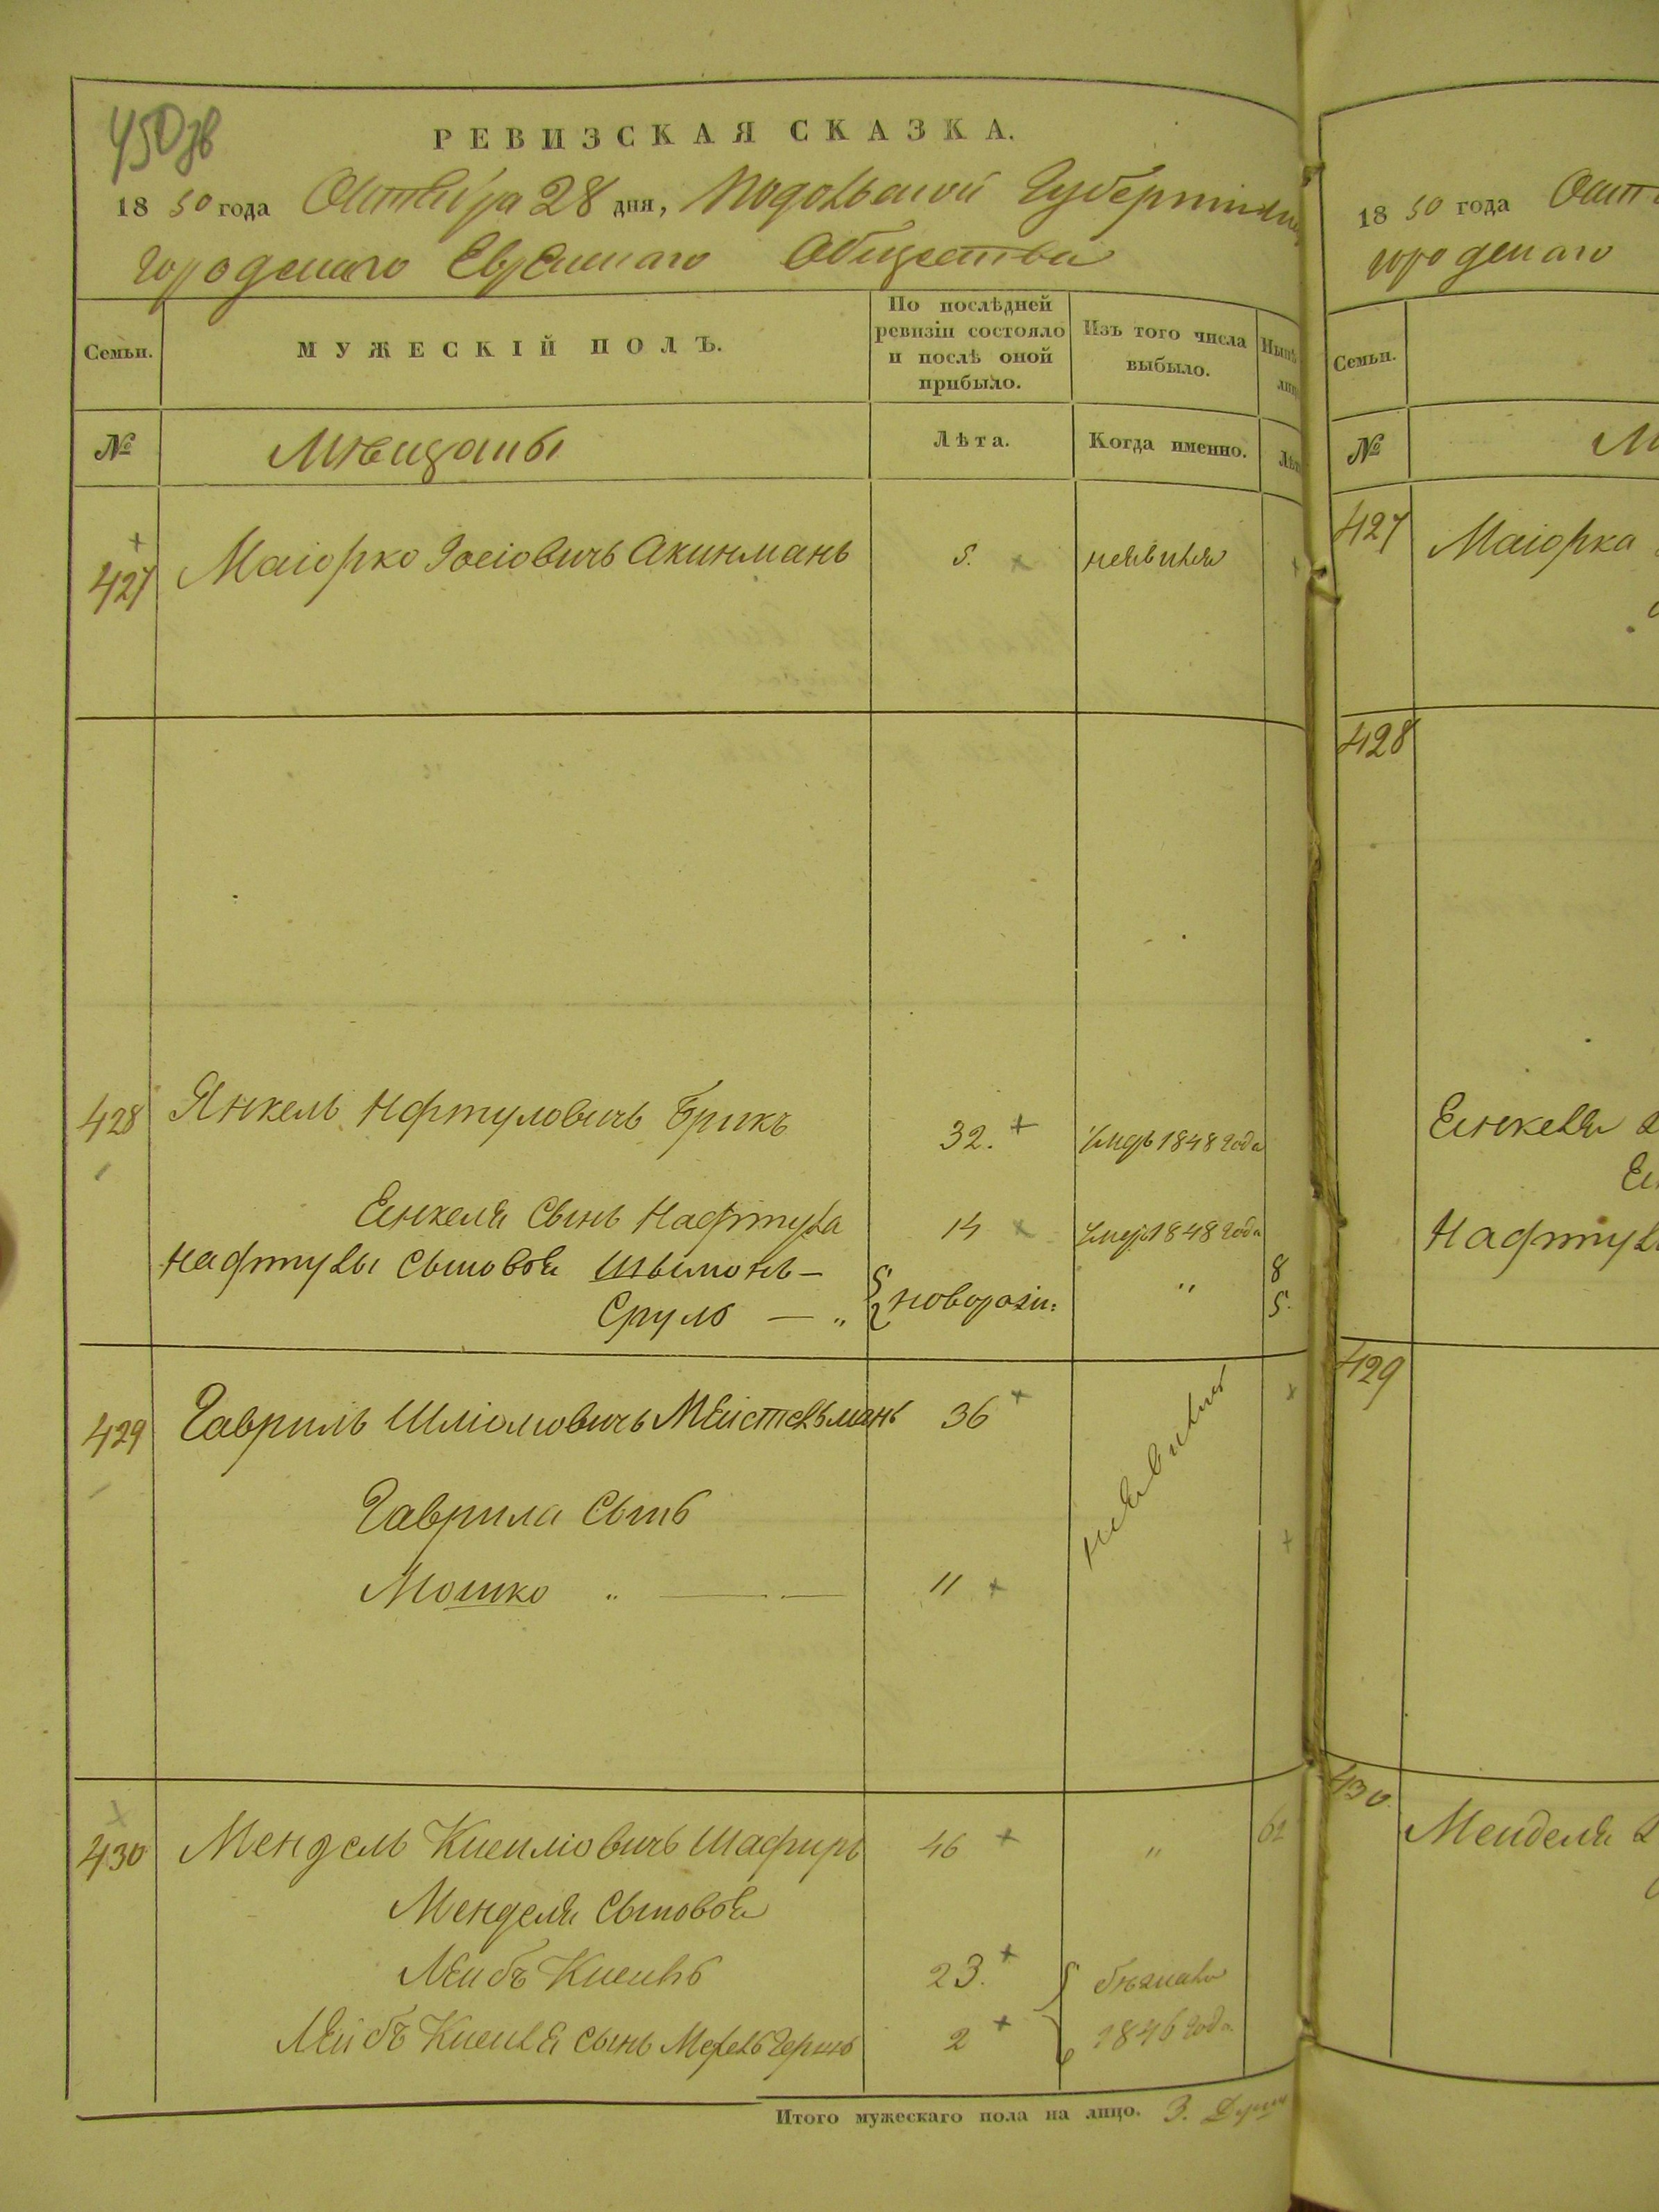 450зв
РЕВИЗСКАЯ СКАЗКА.
1850 года Октября 28 дня, Подольской Губерніи
городскаго Еврейскаго Общества
Семьи.
МУЖЕСКІЙ ПОЛЪ.
По послѣдней ревизіи состояло и послѣ оной прибыло.
Изъ того числа выбыло.
Нынѣ
№
Мѣщаны
Лѣта.
Когда именно.
427 Маіорко Іосіовичь Акинмань 5. неявился
428 Янкель Нфтуловичь Брикъ 32. умеръ 1848 года
Еинкеля Сынь Нафтула 14 умеръ 1848 года
Нафтулы Сыновья Шымонь — 5 новорож: " 8
Сруль — " 2 5.
429 Гавриль Шліомовичь Меистельмань 36 неявился
Гаврила Сынь
Мошко " — 11
430 Мендель Кисиліовичь Шафирь 46 " 62
Менделя Сыновья
Леибъ Кисиль 23. бѣжали
Лейбъ Кисиля Сынь Мехель Гершь 2 1846 года
Итого мужескаго пола на лицо. 3. Души
18 50 года
городскаго
Семьи.
№
427 Маіорка
428
Еинкеля
Нафтулы
429
430
Менделя